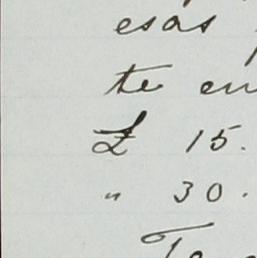 esas
te en
£ 15.
" 30.
Te